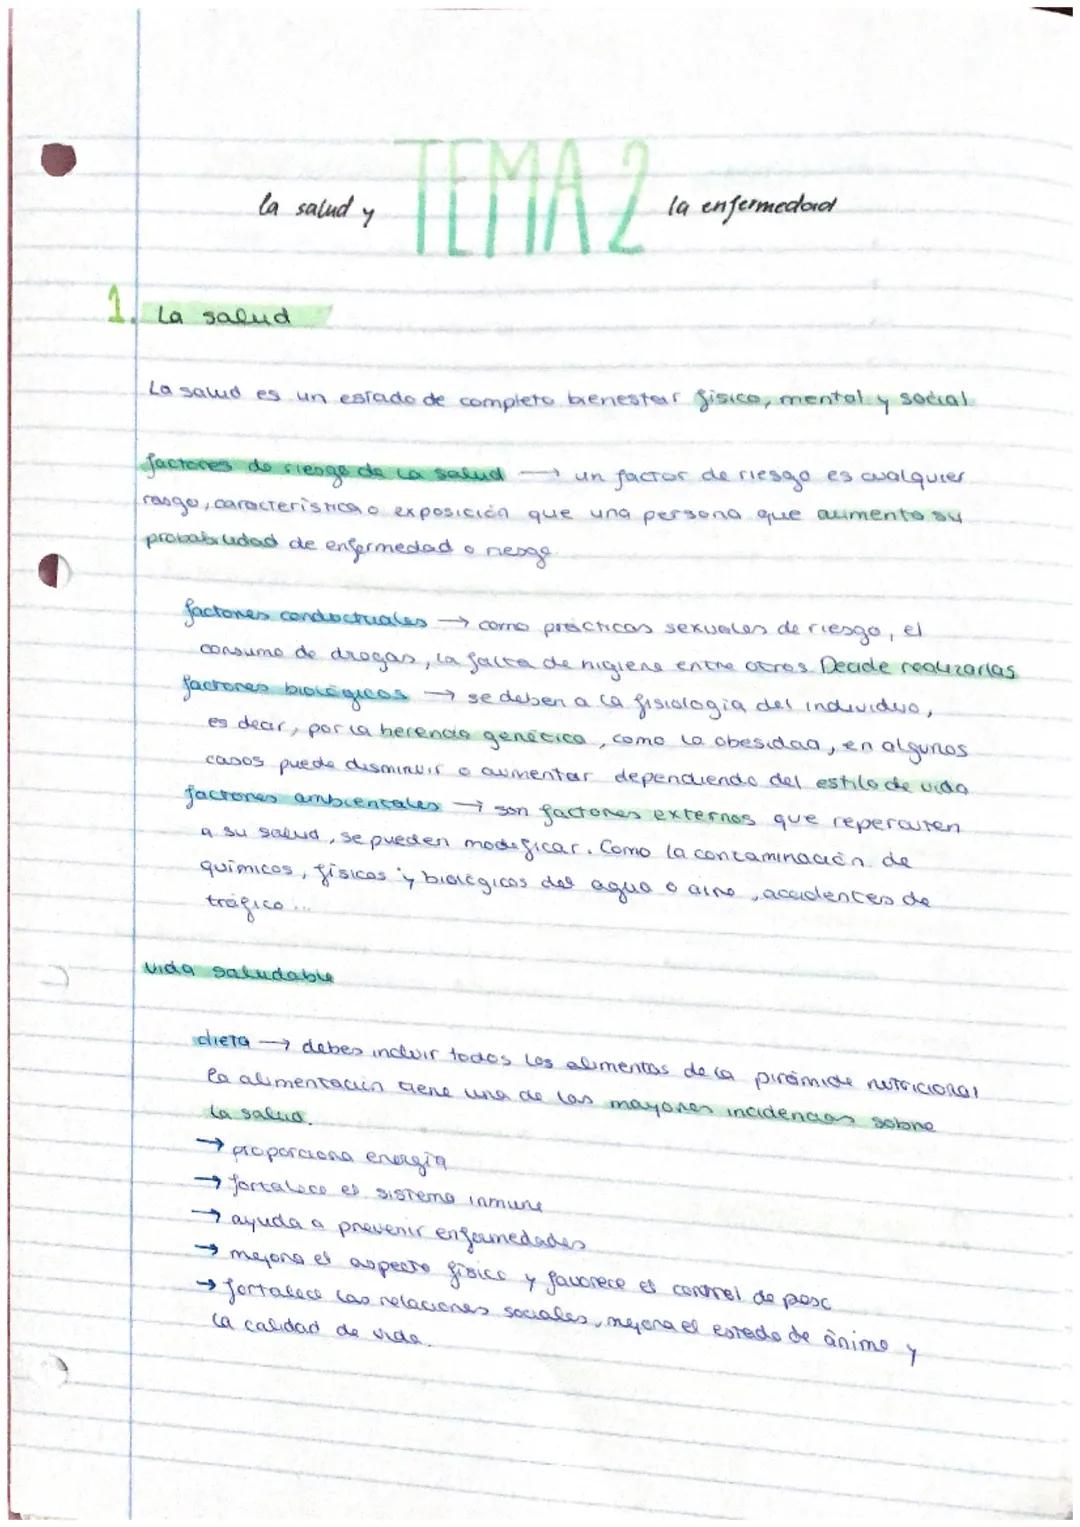 la salud y TEMA 2 la enfermedad
1. La salud
La salud es un estado de completo bienestar físico, mental y social
factores de riesgo de la salud → un factor de riesgo es cualquier
rasgo, característica o exposición que una persona que aumenta su
probabilidad de enfermedad o riesgo
factores conductuales → como prácticas sexuales de riesgo, el
consumo de drogas, la falta de higiene entre otros. Decide realizarlas
factores biológicos → se deben a la fisiología del individuo,
es decir, por la herencia genética, como la obesidad, en algunos
casos puede disminuir o aumentar dependiendo del estilo de vida
factores ambientales → son factores externos que repercuten
a su salud, se pueden modificar. Como la contaminación de
químicos, físicos y biológicos del agua o aire, accidentes de
tráfico ...
vida saludable
dieta → debes incluir todos los alimentos de la pirámide nutricional
la alimentación tiene una de las mayores incidencias sobre
la salud.
→ proporciona energía
→ fortalece el sistema inmune
→ ayuda a prevenir enfermedades
→ mejora el aspecto físico y favorece el control de peso
→ fortalece las relaciones sociales, mejora el estado de ánimo y
la calidad de vida.